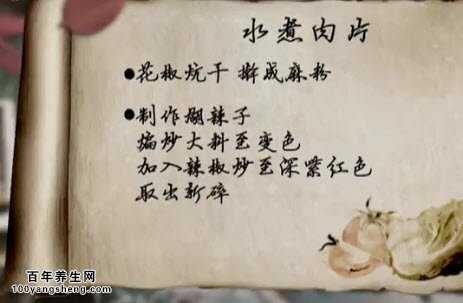 水煮肉片
●花椒炕干 擀成麻粉
●制作煳辣子
煸炒大料至变色
加入辣椒炒至深紫红色
取出斩碎
百年养生网
100yangsheng.com